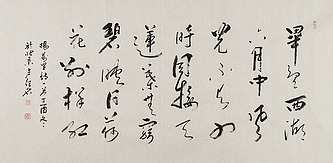 畢竟西湖
六月中風
光不與四
時同接天
蓮葉無窮
碧映日荷
花別樣紅
楊萬里詩 丁酉冬
於北京王